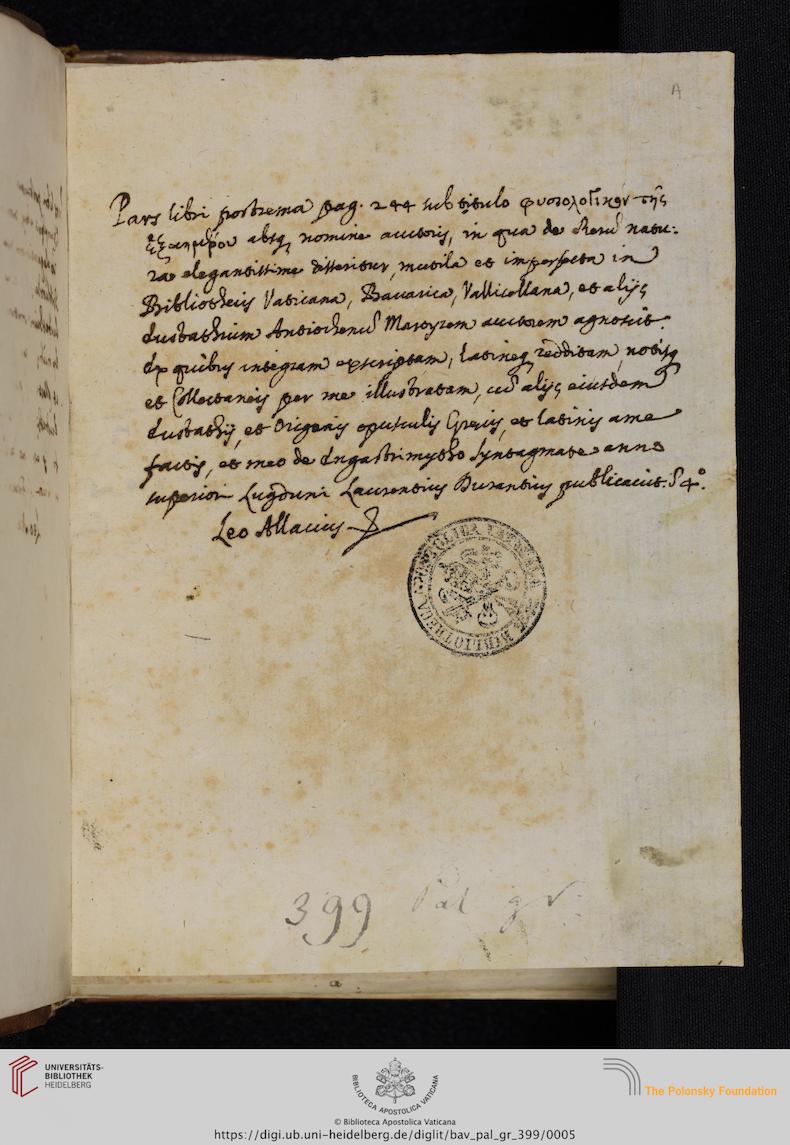 A
Pars libri postrema pag. 244 sub titulo φυσιολογικὸν τῆς
ἑξαημέρου absq, nomine auctoris, in qua de Rerū natu:
rā elegantissime disseritur, mutila et imperfecta in
Bibliothecis Vaticana, Bavarica, Vallicellana, et alijs
Eustathium Antiochenū Martyrem auctorem agnoscit.
Ex quibus integram exscriptam, latineq, redditam, notisq
et Collectaneis per me illustratam, cū alijs eiusdem
Eustathij, et Origenis opusculis Grecis, et latinis a me
factis, et meo de Engastrimytho Syntagmate anno
superiori Lugduni Laurentius Durantius publicavit. 4°.
Leo Allacius
BIBLIOTHECA APOSTOLICA VATICANA
399 Pal gr
UNIVERSITÄTS-
BIBLIOTHEK
HEIDELBERG
BIBLIOTECA APOSTOLICA VATICANA
The Polonsky Foundation
© Biblioteca Apostolica Vaticana
https://digi.ub.uni-heidelberg.de/diglit/bav_pal_gr_399/0005